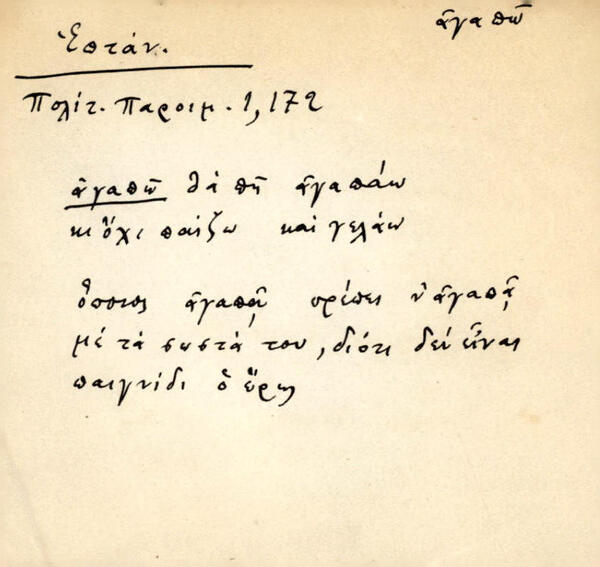 ἀγαπῶ
Ἑπτάν.
Πολίτ. Παροιμ. 1,172
ἀγαπῶ θὰ πῆ ἀγαπάω
κι ὄχι παίζω καὶ γελάω
ὅποιος ἀγαπᾷ πρέπει ν' ἀγαπᾷ
μὲ τὰ σωστά του, διότι δὲν εἶναι
παιγνίδι ὁ ἔρως